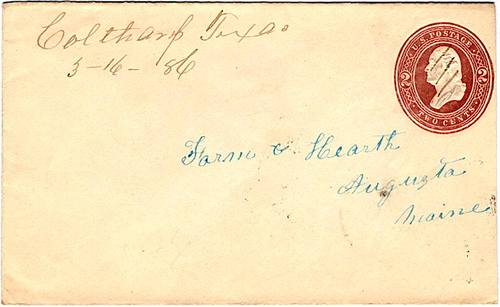 Coltharp Texas
3-16-86
U.S. POSTAGE
2 2
TWO CENTS
Farm & Hearth
Augusta
Maine